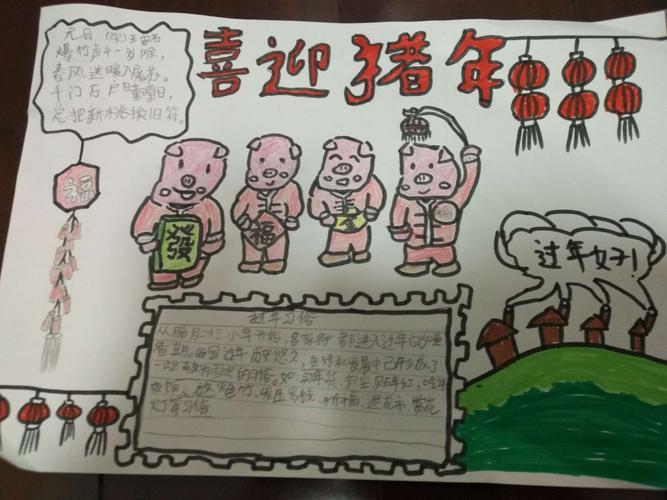 元日 (宋)王安石
爆竹声中一岁除,
春风送暖入屠苏。
千门万户曈曈日,
总把新桃换旧符。
喜迎猪年
福
發
福
过年好!
过年习俗
从腊月二十三小年开始,各家各户都进入过年的准
备期。
过年历史悠久,在传承发展中已形成了
一些较为固定的习俗。如:买年货、扫尘、贴年红、吃年
夜饭、放炮竹、发压岁钱、祈福、逛花市、赏花
灯等习俗